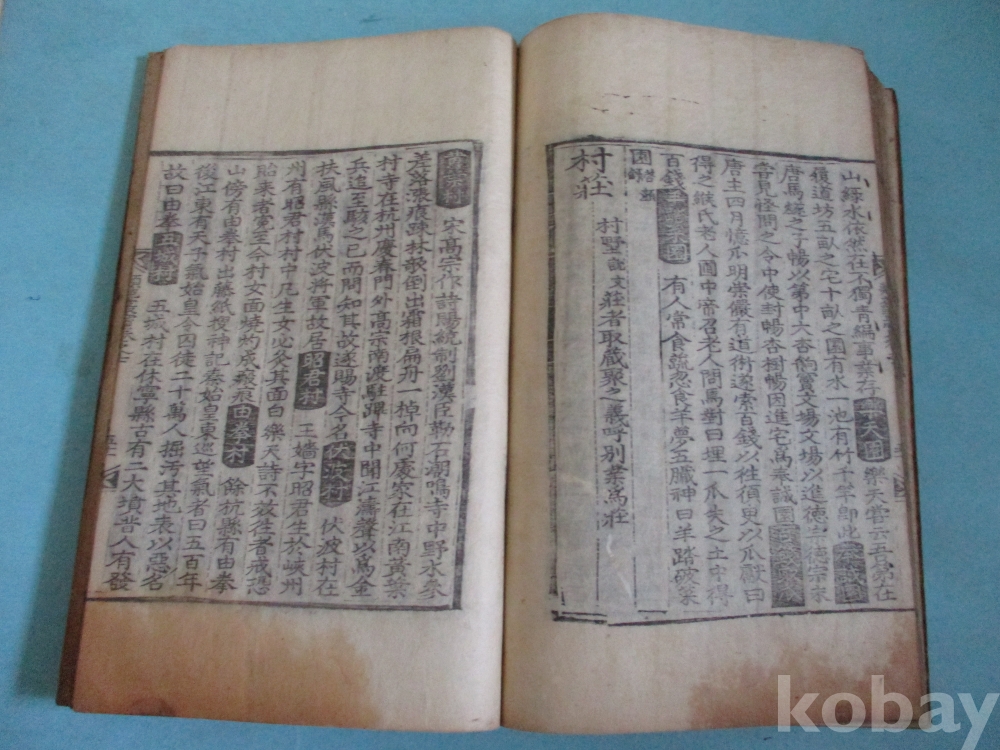 山綠水依然在不獨青編事業存 樂天園 樂天嘗云吾第在
履道坊五畝之宅十畝之園有水一池有竹千竿卽此
唐馬綻之子暢以第中大杏餉竇文場文場以進德宗德宗未
嘗見怪問之令中使封暢杏樹暢因進宅爲奉誠園
唐主四月憶瓜明崇儼有道術遂索百錢以往須臾以瓜獻曰
得之緱氏老人園中帝召老人問焉對曰埋一瓜失之土中得
百錢 有人常食蔬忽食羊夢五臟神曰羊踏破菜
園
村莊
村墅 說文莊者取藏聚之義呼別業爲莊
宋高宗作詩賜統制劉漢臣勒石湖鳴寺中野水參
差落漲痕疎林欹倒出霜根扁舟一棹向何處家在江南黃葉
村寺在杭州慶春門外高宗南渡駐蹕寺中聞江濤聲以爲金
兵追至駭之已而問知其故遂賜寺今名 伏波村 伏波村在
扶風縣漢馬伏波將軍故居 昭君村 王嬙字昭君生於峽州
州有昭君村村中凡生女必灸其面白樂天詩不放往者戒恐
貽來者寃至今村女面燒灼成瘢痕 由拳村 餘杭縣有由拳
山傍有由拳村出藤紙搜神記秦始皇東巡望氣者曰五百年
後江東有天子氣始皇令囚徒二十萬人掘汚其地表以惡名
故曰由拳 五城村 五城村在休寧縣古有二大墳昔人有發
kobay